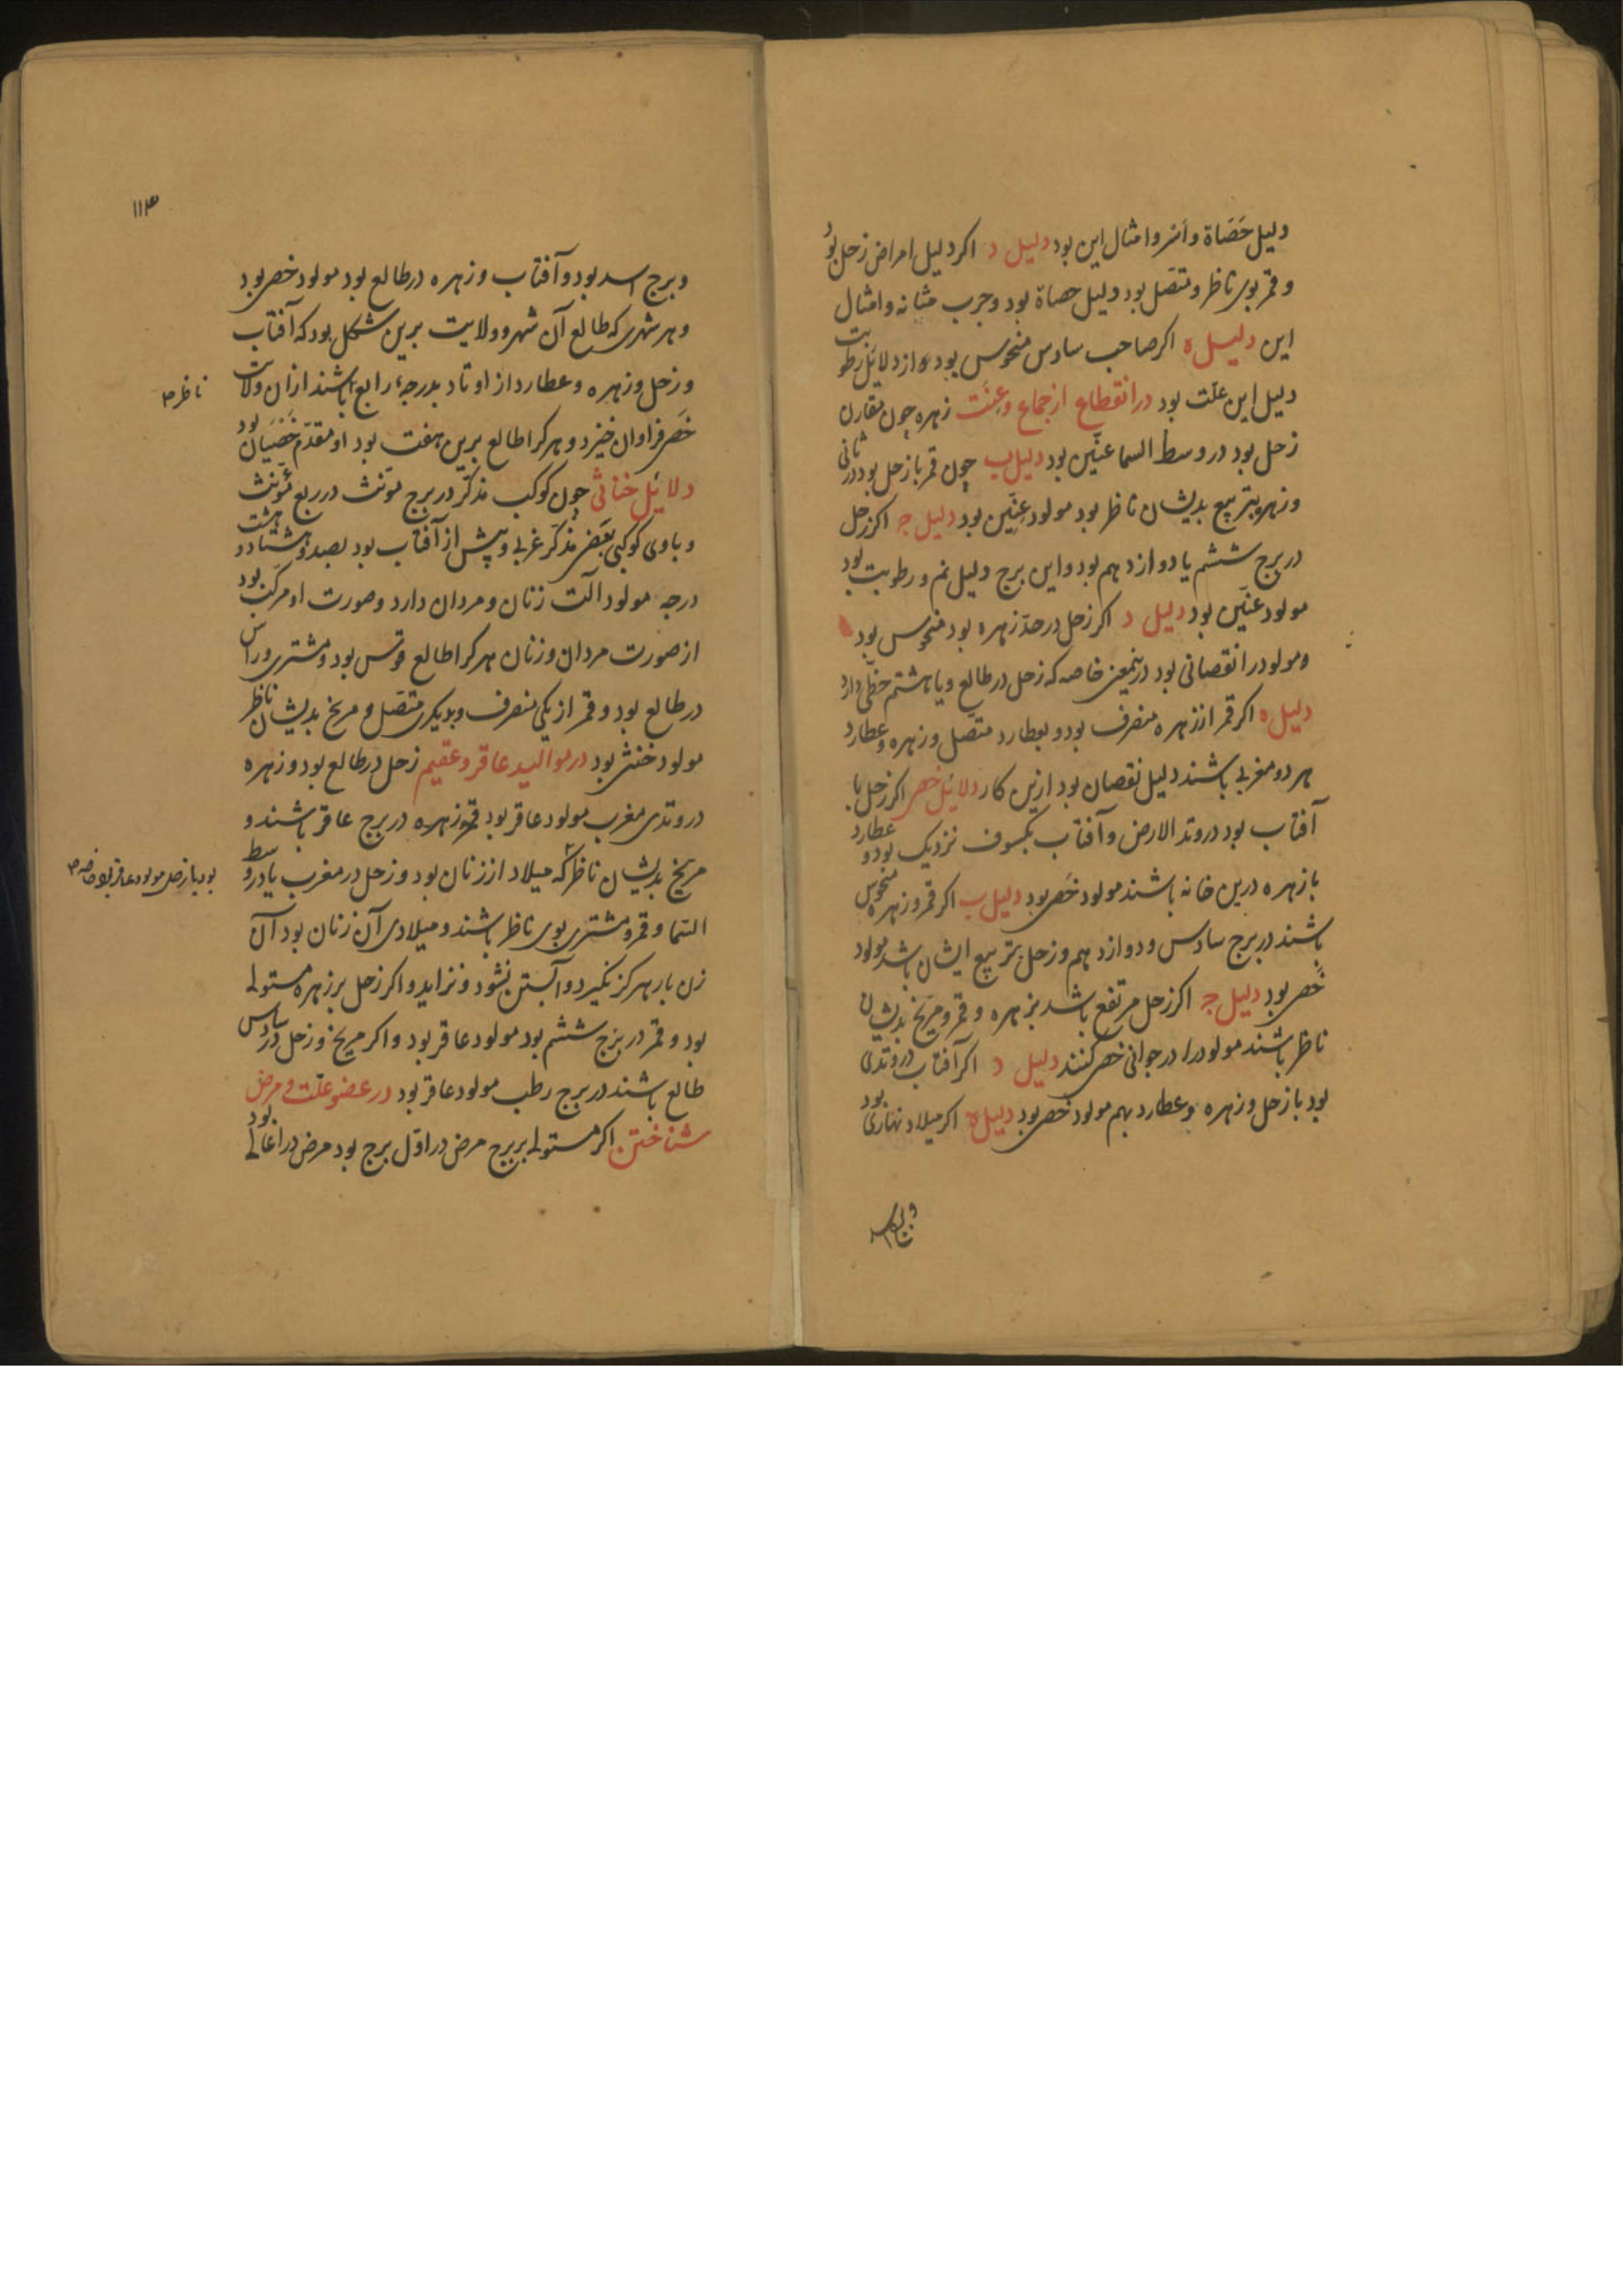 دلیل حَصَاة و اُسر و امثال این بود دلیل د اکر دلیل امراض زحل بوَد
و قمر بوی ناظر و متصل بود دلیل حصاة بود و جرب مثانه و امثال
این دلیل ه اکر صاحب سادس منحوس بود و از دلایل رطوبت
دلیل این علّت بود در انقطاع از جماع و عِنَّت زهره چون مقارن
زحل بود در وسط السما عنّین بود دلیل ب چون قمر با زحل بود در ثانی
و زهره بتربیع بدیشان ناظر بود مولود عِنّین بود دلیل جـ اکر زحل
در برج ششم یا دوازدهم بود و این برج دلیل نم و رطوبت بود
مولود عنّین بود دلیل د اکر زحل در حدّ زهره بود منحوس بود
و مولود را نقصانی بود درینمعنی خاصه که زحل در طالع و یا هشتم حظّی دارد
دلیل ه اکر قمر از زهره منصرف بود و بعطارد متّصل و زهره و عطارد
هر دو مغربی باشند دلیل نقصان بود ازین کار دلائل خصی اکر زحل با
آفتاب بود در وتد الارض و آفتاب بکسوف نزدیک بود و عطارد
با زهره درین خانه باشند مولود خَصی بود دلیل ب اکر قمر و زهره منحوس
باشند در برج سادس و دوازدهم و زحل بتربیع ایشان باشد مولود
خَصی بود دلیل جـ اکر زحل مرتفع باشد بزهره و قمر و مریخ بدیشان
ناظر باشند مولود را در جوانی خصی کنند دلیل د اکر آفتاب در وتدی
بود با زحل و زهره و عطارد بهم مولود خصی بود دلیل ه اکر میلاد نهاری بود
و برج اسد
۱۱۳
و برج اسد بود و آفتاب و زهره در طالع بود مولود خصی بود
و هر شهری که طالع آن شهر و ولایت برین شکل بود که آفتاب
و زحل و زهره و عطارد از اوتاد بدرجهٔ رابع باشند ازان ولایت
ناظر ۳
خَصی فراوان خیزد و هر کرا طالع برین هفت بود او مقدّم خَصْیَان بود
دلائل خناثی چون کوکب مذکّر در برج مؤنّث در ربع مؤنّث
و باوی کوکبی بعضی مذکّر غربی و پیش از آفتاب بود بصد و هشتاد و هشت
درجه مولود آلت زنان و مردان دارد و صورت او مرکّب بود
از صورت مردان و زنان هر کرا طالع قوس بود و مشتری و راس
در طالع بود و قمر از یکی منصرف و بدیکری متّصل و مریخ بدیشان ناظر
مولود خنثی بود در موالید عاقر و عقیم زحل در طالع بود و زهره
در وتدی مغرب مولود عاقر بود قمر و زهره در برج عاقر باشند و
مریخ بدیشان ناظر که میلاد از زنان بود و زحل در مغرب یا در وسط
بود با زحل مولود عاقر بود خاصه ۳
السّما و قمر و مشتری بوی ناظر باشند و میلادی آن زنان بود آن
زن بار هرکز نکیرد و آبستن نشود و نزاید و اکر زحل بر زهره مستولی
بود و قمر در برج ششم بود مولود عاقر بود و اکر مریخ و زحل در سادس
طالع باشند در برج رطب مولود عاقر بود در عضو علّت و مرض
شناختن اکر مستولی بر برج مرض در اوّل برج بود مرض در اعالی بود